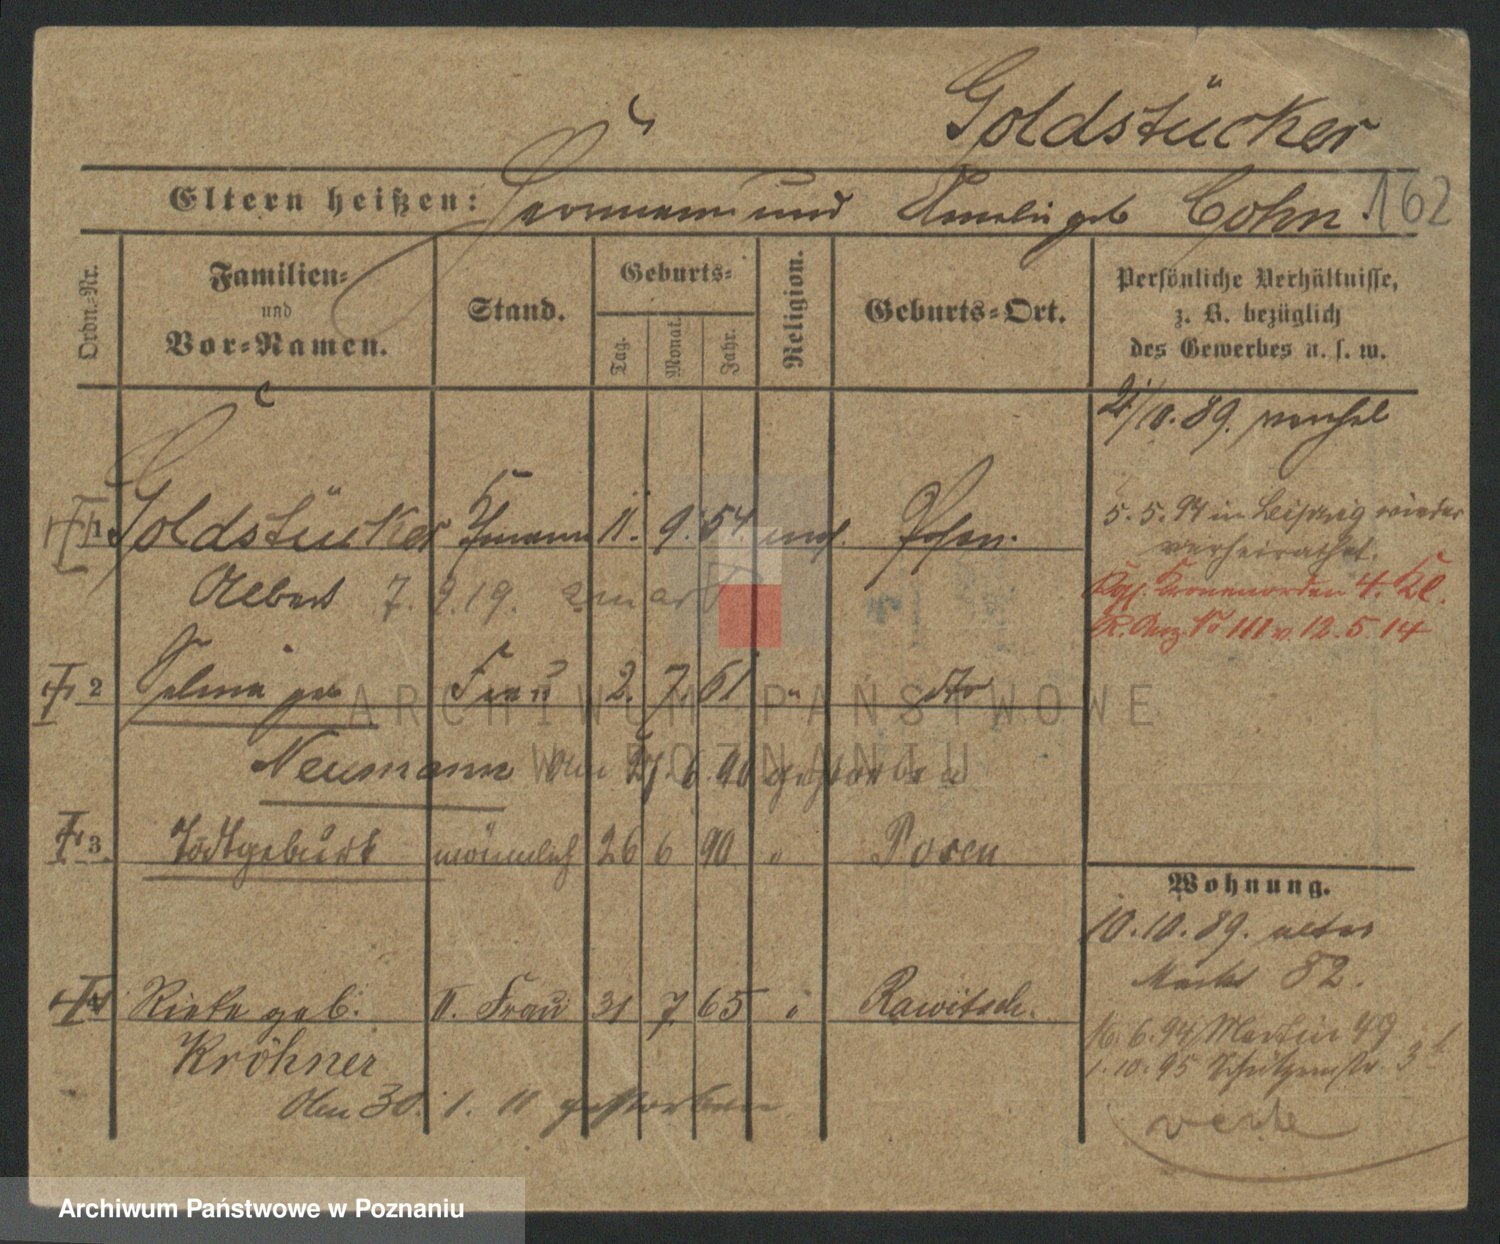 Goldstücker
162
Eltern heißen: Hermann und Amalie geb Cohn.
Ordn.-Nr.
Familien-
und
Vor-Namen.
Stand.
Geburts-
Tag.
Monat.
Jahr.
Religion.
Geburts-Ort.
Persönliche Verhältnisse,
z. B. bezüglich
des Gewerbes u. s. w.
/10.89.
1 Goldstücker 11. 9. 54. mos. Posen.
5. 5. 94 in Leipzig wieder
verheirathet.
Albert 7. 9. 19.
Kgl. Kronenorden 4. Kl.
R. Anz No 111 v. 12. 5. 14
2 Selma geb Frau 2. 7. 61 " dto
Neumann am 27. 6. 90 gestorben
3. Todtgeburt männlich 26 6 90 " Posen
Wohnung.
10. 10. 89. alter
Markt 82.
4 Rieke geb. II. Frau 31 7. 65 " Rawitsch.
Kröhner
16. 6. 94 Martin 49
1. 10. 95 Schützenstr. 3
den 30. 1. 11 gestorben
verte
ARCHIWUM PAŃSTWOWE
W POZNANIU
Archiwum Państwowe w Poznaniu